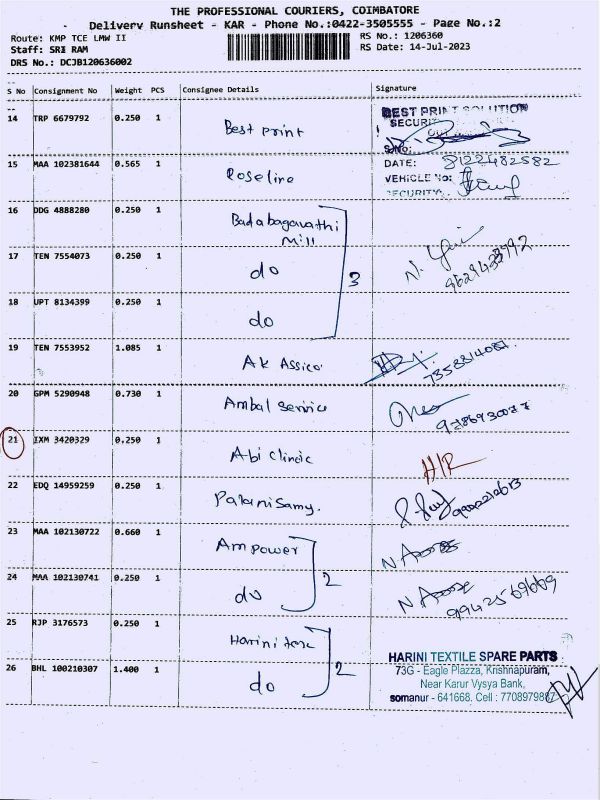 THE PROFESSIONAL COURIERS, COIMBATORE
Delivery Runsheet - KAR - Phone No.:0422-3505555 - Page No.:2
Route: KMP TCE LMW II
RS No.: 1206360
Staff: SRI RAM
RS Date: 14-Jul-2023
DRS No.: DCJB120636002
S No Consignment No Weight PCS Consignee Details Signature
14 TRP 6679792 0.250 1 Best print
BEST PRINT SOLUTION
SECURITY
S.No:
15 MAA 102381644 0.565 1 Roseline
DATE: 8122482582
VEHICLE No:
SECURITY
16 DDG 4888280 0.250 1 Badabagavathi
Mill
17 TEN 7554073 0.250 1 do 3
18 UPT 8134399 0.250 1 do
19 TEN 7553952 1.085 1 AK Assico 7358814087
20 GPM 5290948 0.730 1 Ambal service
21 IXM 3420329 0.250 1 Abi clinic
22 EDQ 14959259 0.250 1 Palanisamy.
23 MAA 102130722 0.660 1 Ampower
24 MAA 102130741 0.250 1 do 2 9942569669
25 RJP 3176573 0.250 1 Harini
26 BHL 100210307 1.400 1 do 2
HARINI TEXTILE SPARE PARTS
73G - Eagle Plazza, Krishnapuram,
Near Karur Vysya Bank,
somanur - 641668. Cell : 7708979887